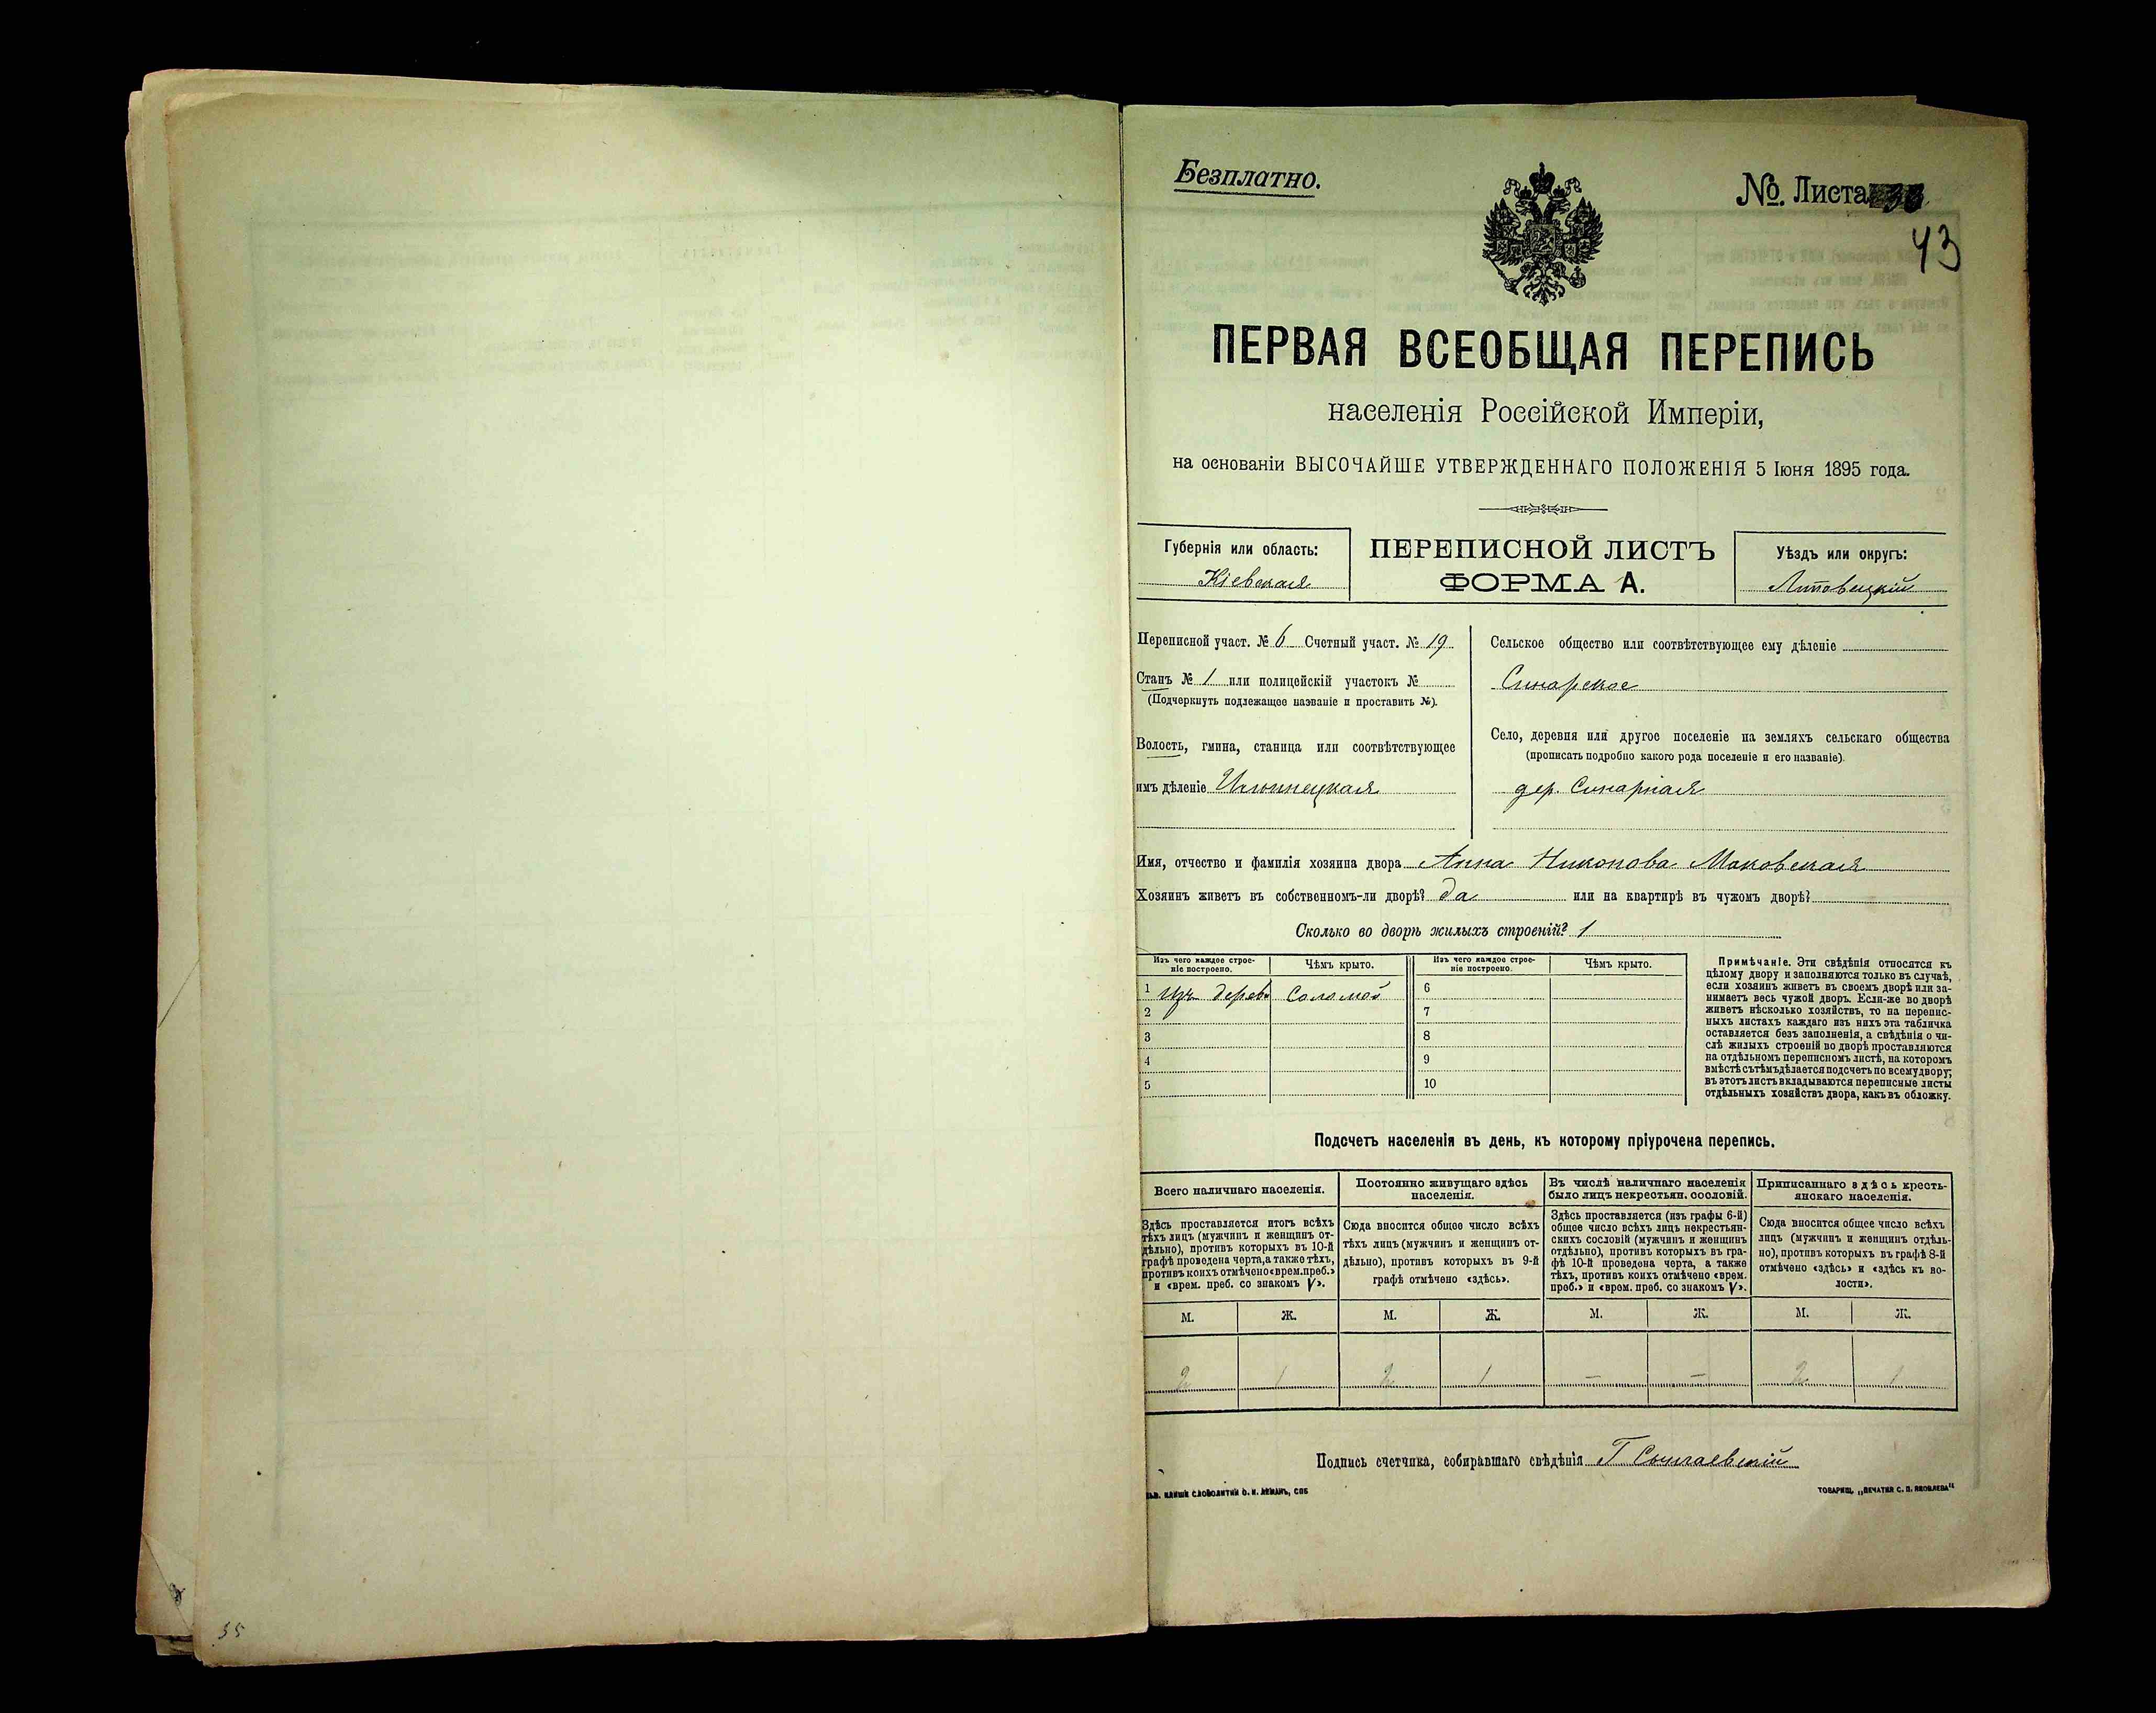 Безплатно.
№. Листа 33
43
ПЕРВАЯ ВСЕОБЩАЯ ПЕРЕПИСЬ
населенія Россійской Имперіи,
на основаніи ВЫСОЧАЙШЕ УТВЕРЖДЕННАГО ПОЛОЖЕНІЯ 5 Іюня 1895 года.
Губернія или область:
Кіевская
ПЕРЕПИСНОЙ ЛИСТЪ
ФОРМА А.
Уѣздъ или округъ:
Липовецкій
Переписной участ. № 6 Счетный участ. № 19
Станъ № 1 или полицейскій участокъ №
(Подчеркнуть подлежащее названіе и проставить №).
Волость, гмина, станица или соотвѣтствующее
имъ дѣленіе Ильинецкая
Сельское общество или соотвѣтствующее ему дѣленіе
Синарское
Село, деревня или другое поселеніе на земляхъ сельскаго общества
(прописать подробно какого рода поселеніе и его названіе).
дер. Синарная
Имя, отчество и фамилія хозяина двора Анна Никонова Маковская
Хозяинъ живетъ въ собственномъ-ли дворѣ? да или на квартирѣ въ чужомъ дворѣ?
Сколько во дворѣ жилыхъ строеній? 1
Изъ чего каждое строе-
ніе построено.
Чѣмъ крыто.
Изъ чего каждое строе-
ніе построено.
Чѣмъ крыто.
1 Изъ дерева Соломой
2
3
4
5
6
7
8
9
10
Примѣчаніе. Эти свѣдѣнія относятся къ
цѣлому двору и заполняются только въ случаѣ,
если хозяинъ живетъ въ своемъ дворѣ или за-
нимаетъ весь чужой дворъ. Если-же во дворѣ
живетъ нѣсколько хозяйствъ, то на перепис-
ныхъ листахъ каждаго изъ нихъ эта табличка
оставляется безъ заполненія, а свѣдѣнія о чи-
слѣ жилыхъ строеній во дворѣ проставляются
на отдѣльномъ переписномъ листѣ, на которомъ
вмѣстѣ съ тѣмъ дѣлается подсчетъ по всему двору;
въ этотъ листъ вкладываются переписные листы
отдѣльныхъ хозяйствъ двора, какъ въ обложку.
Подсчетъ населенія въ день, къ которому пріурочена перепись.
Всего наличнаго населенія.
Здѣсь проставляется итогъ всѣхъ
тѣхъ лицъ (мужчинъ и женщинъ от-
дѣльно), противъ которыхъ въ 10-й
графѣ проведена черта, а также тѣхъ,
противъ коихъ отмѣчено «врем. преб.»
и «врем. преб. со знакомъ V».
Постоянно живущаго здѣсь
населенія.
Сюда вносится общее число всѣхъ
тѣхъ лицъ (мужчинъ и женщинъ от-
дѣльно), противъ которыхъ въ 9-й
графѣ отмѣчено «здѣсь».
Въ числѣ наличнаго населенія
было лицъ некрестьян. сословій.
Здѣсь проставляется (изъ графы 6-й)
общее число всѣхъ лицъ некрестьян-
скихъ сословій (мужчинъ и женщинъ
отдѣльно), противъ которыхъ въ гра-
фѣ 10-й проведена черта, а также
тѣхъ, противъ коихъ отмѣчено «врем.
преб.» и «врем. преб. со знакомъ V».
Приписаннаго здѣсь кресть-
янскаго населенія.
Сюда вносится общее число всѣхъ
лицъ (мужчинъ и женщинъ отдѣль-
но), противъ которыхъ въ графѣ 8-й
отмѣчено «здѣсь» и «здѣсь къ во-
лости».
М. Ж. М. Ж. М. Ж. М. Ж.
2 1 2 1 – – 2 1
Подпись счетчика, собиравшаго свѣдѣнія Г
КЛИШЕ СЛОВОЛИТНИ О. И. ЛЕМАНЪ, СПБ
ТОВАРИЩ. „ПЕЧАТНЯ С. П. ЯКОВЛЕВА“
55